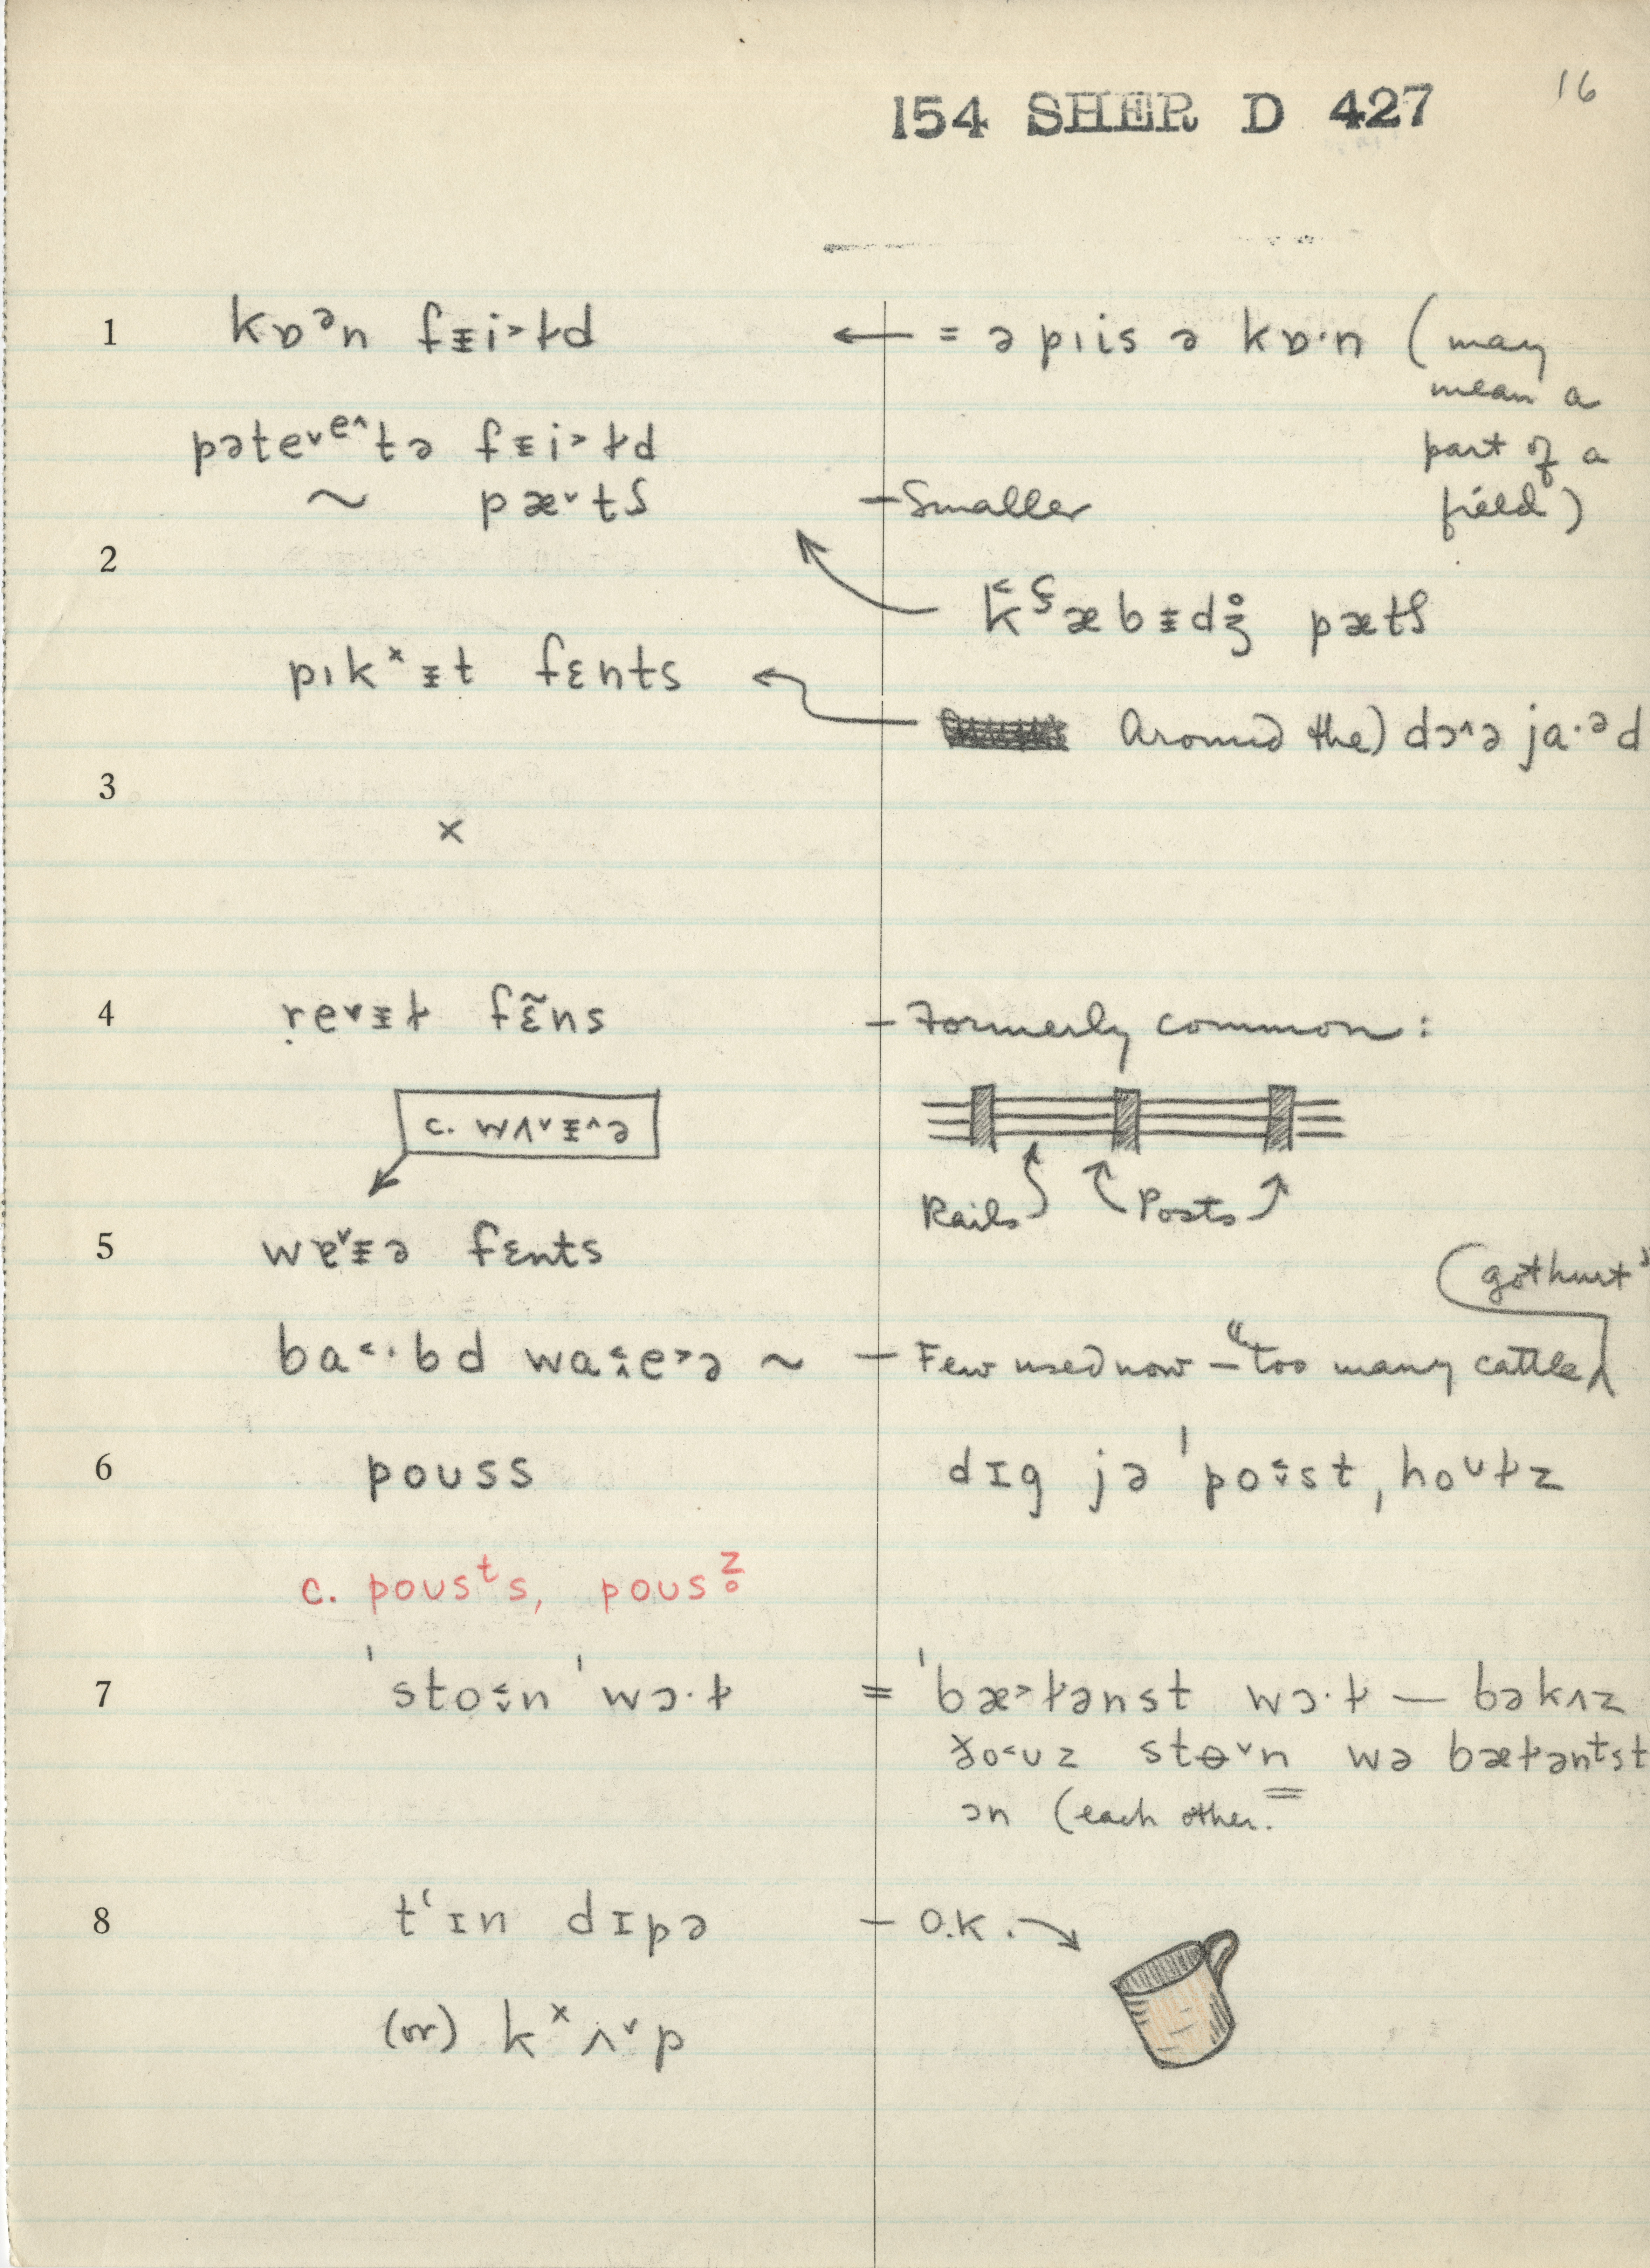 16
154 SHER D 427
1 kɒᵊn fᵻi˃ɫd ← = ə pıis ə kɒ·n (may
mean a
part of a
field)
pəte˅ᵉ˄tə fᵻi˃ɫd
~ pæ˅tʃ – Smaller
2
k̬ʃæbᵻdʒ̊ pætʃ
pıkˣᵻt fɛnts
Around the) dɔ˄ə ja·ᵊd
3
x
4 ṛe˅ᵻɫ fɛ̃ns – Formerly common:
c. wʌ˅ᵻ˄ə
Rails Posts
5 wɐ˅ᵻə fɛnts
(got hurt"
ba˂·bd wa᎑e˃ə ~ – Few used now – "too many cattle
6 pouss dɪg jə ˈpoʊst, hoᶷɫz
c. pousᵗs, pousᶻ̥
7 ˈstoʊn ˈwɔ·ɫ = ˈbæ˃ɫənst wɔ·ɫ — bəkʌz
ðo˂ʊz stɵ˅n wə bæɫənᵗst
ɔn (each other.
8 tʻɪn dɪpə – O.K.
(or) kˣʌ˅p